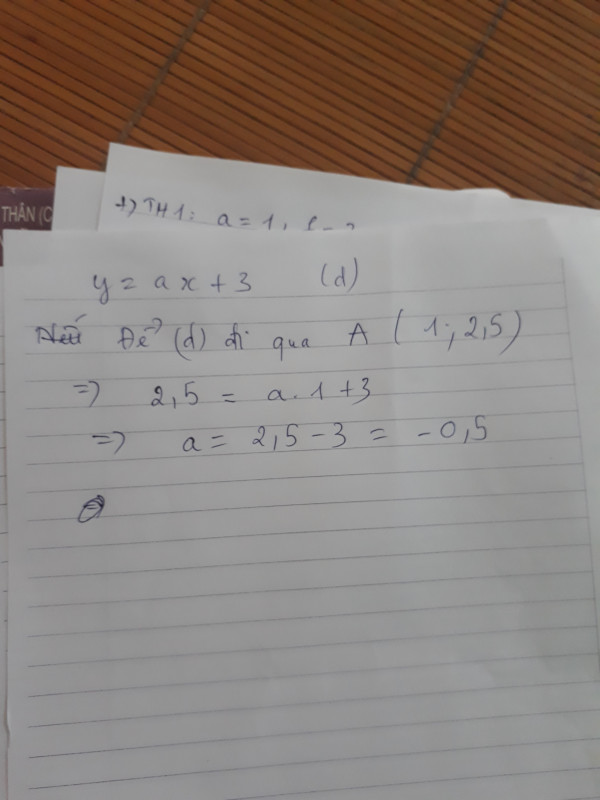 THÂN (C
+) TH1: a = 1,
y = ax + 3 (d)
Để (d) đi qua A ( 1; 2,5)
=) 2,5 = a. 1 + 3
=) a = 2,5 - 3 = - 0,5